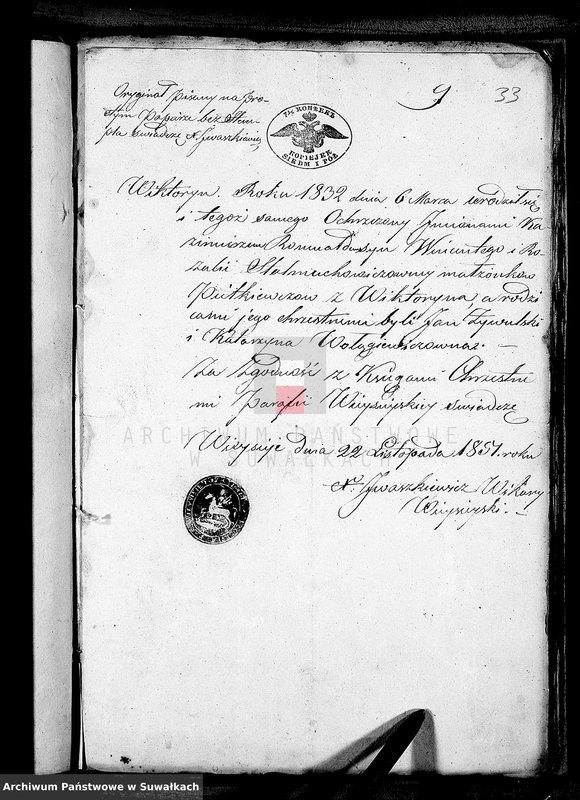 Oryginał pisany na pro-
stym Papierze bez Stem-
pla świadczę X. Jwaszkiewicz
9
33
7½ КОПѢЕКЪ
KOPIEJEK
SIEDM I PÓŁ
Wiktoryn. Roku 1832 dnia 6 Marca urodził się
i tegoż samego Ochrzczony Jmionami Ka-
zimierz Romuald syn Wincentego i Ro-
zalii Stelmachowiczowny małżonków
Pietkiewiczow z Wiktoryna, a rodzi-
cami jego chrzestnemi byli Jan Żywulski
i Katarzyna Wołągiewiczowna. —
Za Zgodność z Księgami Chrzestne-
mi Parafii Wiżajnskiej świadczę
ARCHIWUM PAŃSTWOWE
W SUWAŁKACH
dnia 22 Listopada 1851. roku
X. Jwaszkiewicz Wikary
Archiwum Państwowe w Suwałkach